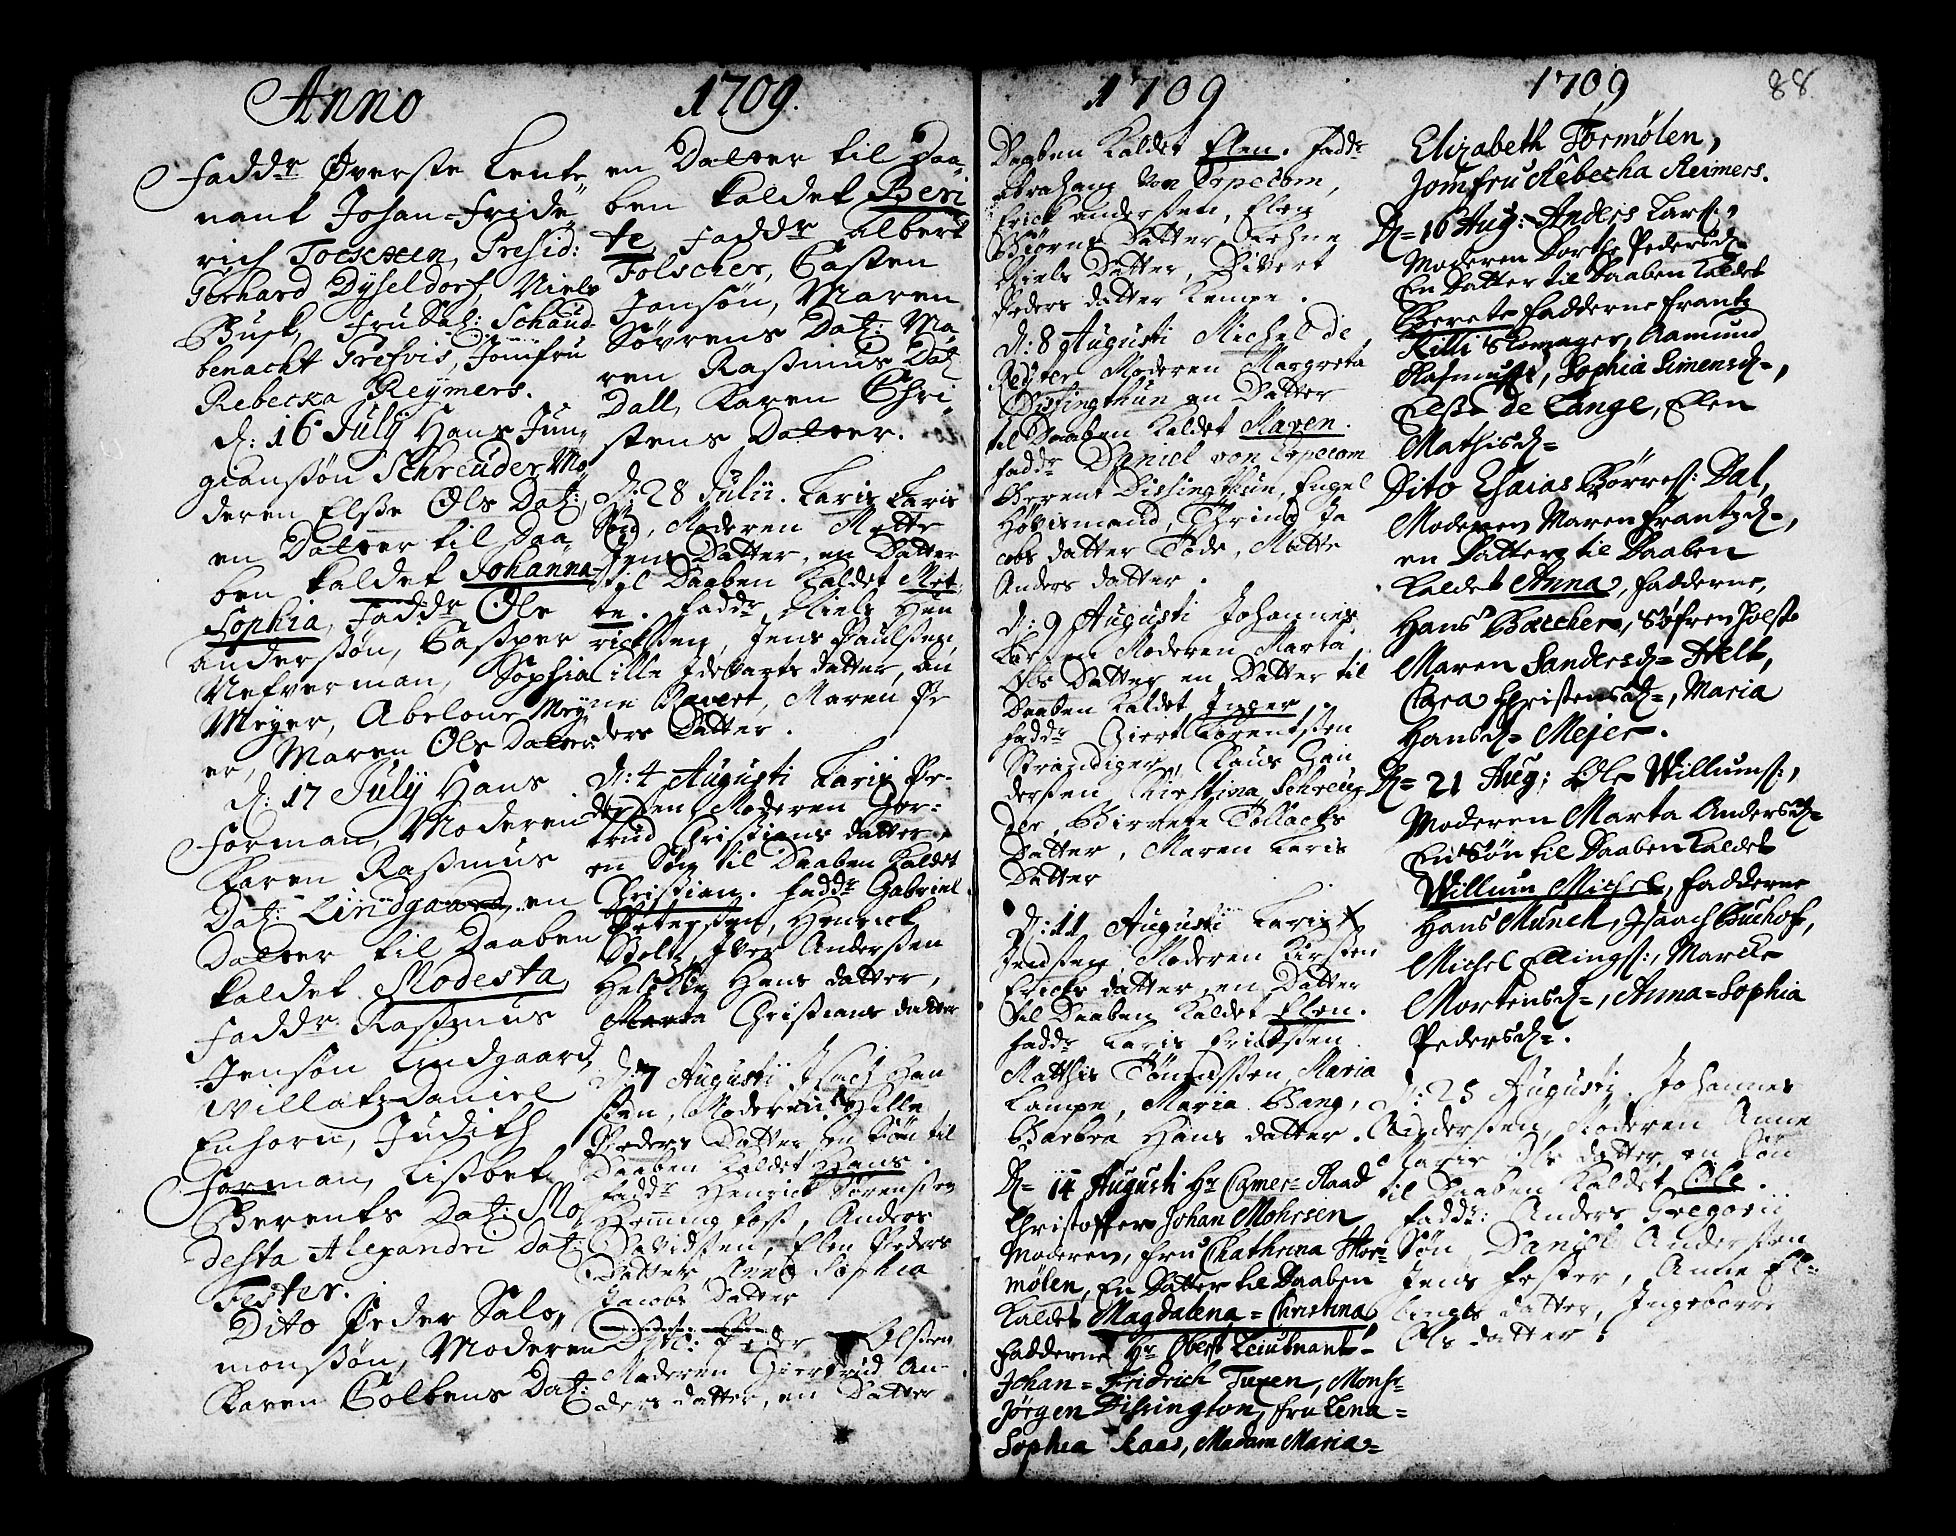 Anno 1709.
Faddr Øverste Leute
nant Johan=Fride
rich Tocsxen, Presid:
Gerhard Dyseldorf, Niels
Busk, Fru Sal: Schaud
benacht Tresvis, Jomfru
Rebecka Reymers.
d: 16 July Hans Jun
gianssøn Schreuder Mo
deren Elsse Ols Datz:
en Datter til Daa
ben kaldet Johanna
Sophia, Faddr Ole
anderssøn, Casper
Nefverman, Sophia
Meyer, Abelone Mey
er, Maren Ols Datter
d: 17 July Hans
Forman, Moderen
Karen Rasmus
Datz: Lindgaard, en
Datter til Daaben
kaldet Modesta
Faddr: Rasmus
Jensøn Lindgaard,
Willatz Daniel
Enhorn, Judith
Forman, Lisbet
Berents Datz: Mo
desta Alexandri Datz
Fester.
Dito Peder Salo,
monssøn, Moderen
Karen Colbens Datz:
en Datter til Daa
ben kaldet Beri
te Faddr Albert
Tolscher, Casten
Jansøn, Maren
Sövrens Datz: Ma
ren Rasmus Datz
Dall, Karen Chri
stens Datter.
D: 28 Julii. Laris Laris
Søn, Moderen Mette
Jens Datter, en Datter
til Daaben kaldet Met
te. Faddr Niels Hen
ricksen, Jens Paulsen,
ille Idevarts datter, an
ne Bavert, Maren Pe
ders Datter.
D: 4 Augusti Laris Pe-
dersen Moderen Ger-
trud Christians datter
en Søn til Daaben kaldet
Christian. Faddr Gabriel
Petersen, Henrick
Stolt, Iver Andersen
Hans datter,
Marta Christians datter
D: 7 Augusti Isach Han
sen, Moderen Hille
Peders Datter en Søn til
Daaben kaldet Hans.
Faddr Henrick Sørensen
Hemming fos, Anders
Davidsen, Elen Peders
Datter, Anna Sophia
Jacobs Datter
Peder Olsen
Moderen Giertrud An-
ders datter, en Datter
1709
Daaben kaldet Elen. Faddr
abraham Von Erpecom,
Erick andersen, Elen
Biørns Datter,
Niels Datter, Sivert
Peders datter Kempe.
D: 8 Augusti Michel de
Reyter Moderen Margreta
Dissingthun en Datter
til Daaben kaldet Maren.
Faddr Daniel von Erpecom
Berent Dissingthun, Engel
Høvismand, Thrina Ja
cobs datter Tode, Mette
Anders datter.
d: 9 Augusti Johannes
Larsen Moderen Marta
Ols Datter en Datter til
Daaben kaldet Inger
Faddr Giert Lorentsen
Strandiger, Claus Gun
dersen, Kirstina Schreu
der, Birrete Tollachs
Datter, Maren Laris
Datter
D: 11 Augusti Laris
Jensen Moderen Kirsten
Ericks datter, en Datter
til Daaben kaldet Elen.
Faddr Laris Ericksen
Matthis Tønnesen, Maria
Lampe, Maria Bang,
Barbra Hans datter.
D= 14 Augusti Hr Camer=Raad
Christoffer Johan Mohrsen
Moderen, Fru Chathrina Thor=
mølen, En Datter til Daaben
Kaldet Magdalena=Christina
Fadderne Hr Oberst Leiutnant=
Johan=Fridrich Tuxen, Mons:
Jørgen Dissington, Fru Lena=
Sophia Kaas, Madam Maria=
1709
88
Elizabeth Tormølen,
Jomfru Rebecha Reimers.
D= 16 Aug: Anders Lars:,
Moderen Dorthe Pedersd=
En Datter til Daaben Kaldet
Berete Fadderne Frantz
Rilli Skomager, Aamund
Rasmuss:, Sophia Simensd=,
Elsse de Lange, Elen
Mathisd=
Dito Esaias Børres: Dal,
Moderen Maren Frantzd=,
en Datter til Daaben
Kaldet Anna, Fadderne,
Hans Bøtcher, Søfren Holst
Maren Sandersd= Helt,
Clara Christensd=, Maria
Hansd= Mejer.
D= 21 Aug: Ole Willums:,
Moderen Marta Andersd=
En Søn til Daaben Kaldet
Willum Michel, Fadderne
Hans Munck, Isaach Buchof,
Michel Ellings:, Marete
Mortensd=, Anna=Sophia
Pedersd=.
D: 25 Augusti Johannes
Andersen, Moderen Anne
Marie Ols datter, en Søn
til Daaben kaldet Ole.
Faddr: Anders Gregorii
Søn, Daniel Andersen
Jens Fester, Anne El-
lings datter, Ingeborre
Ols datter.